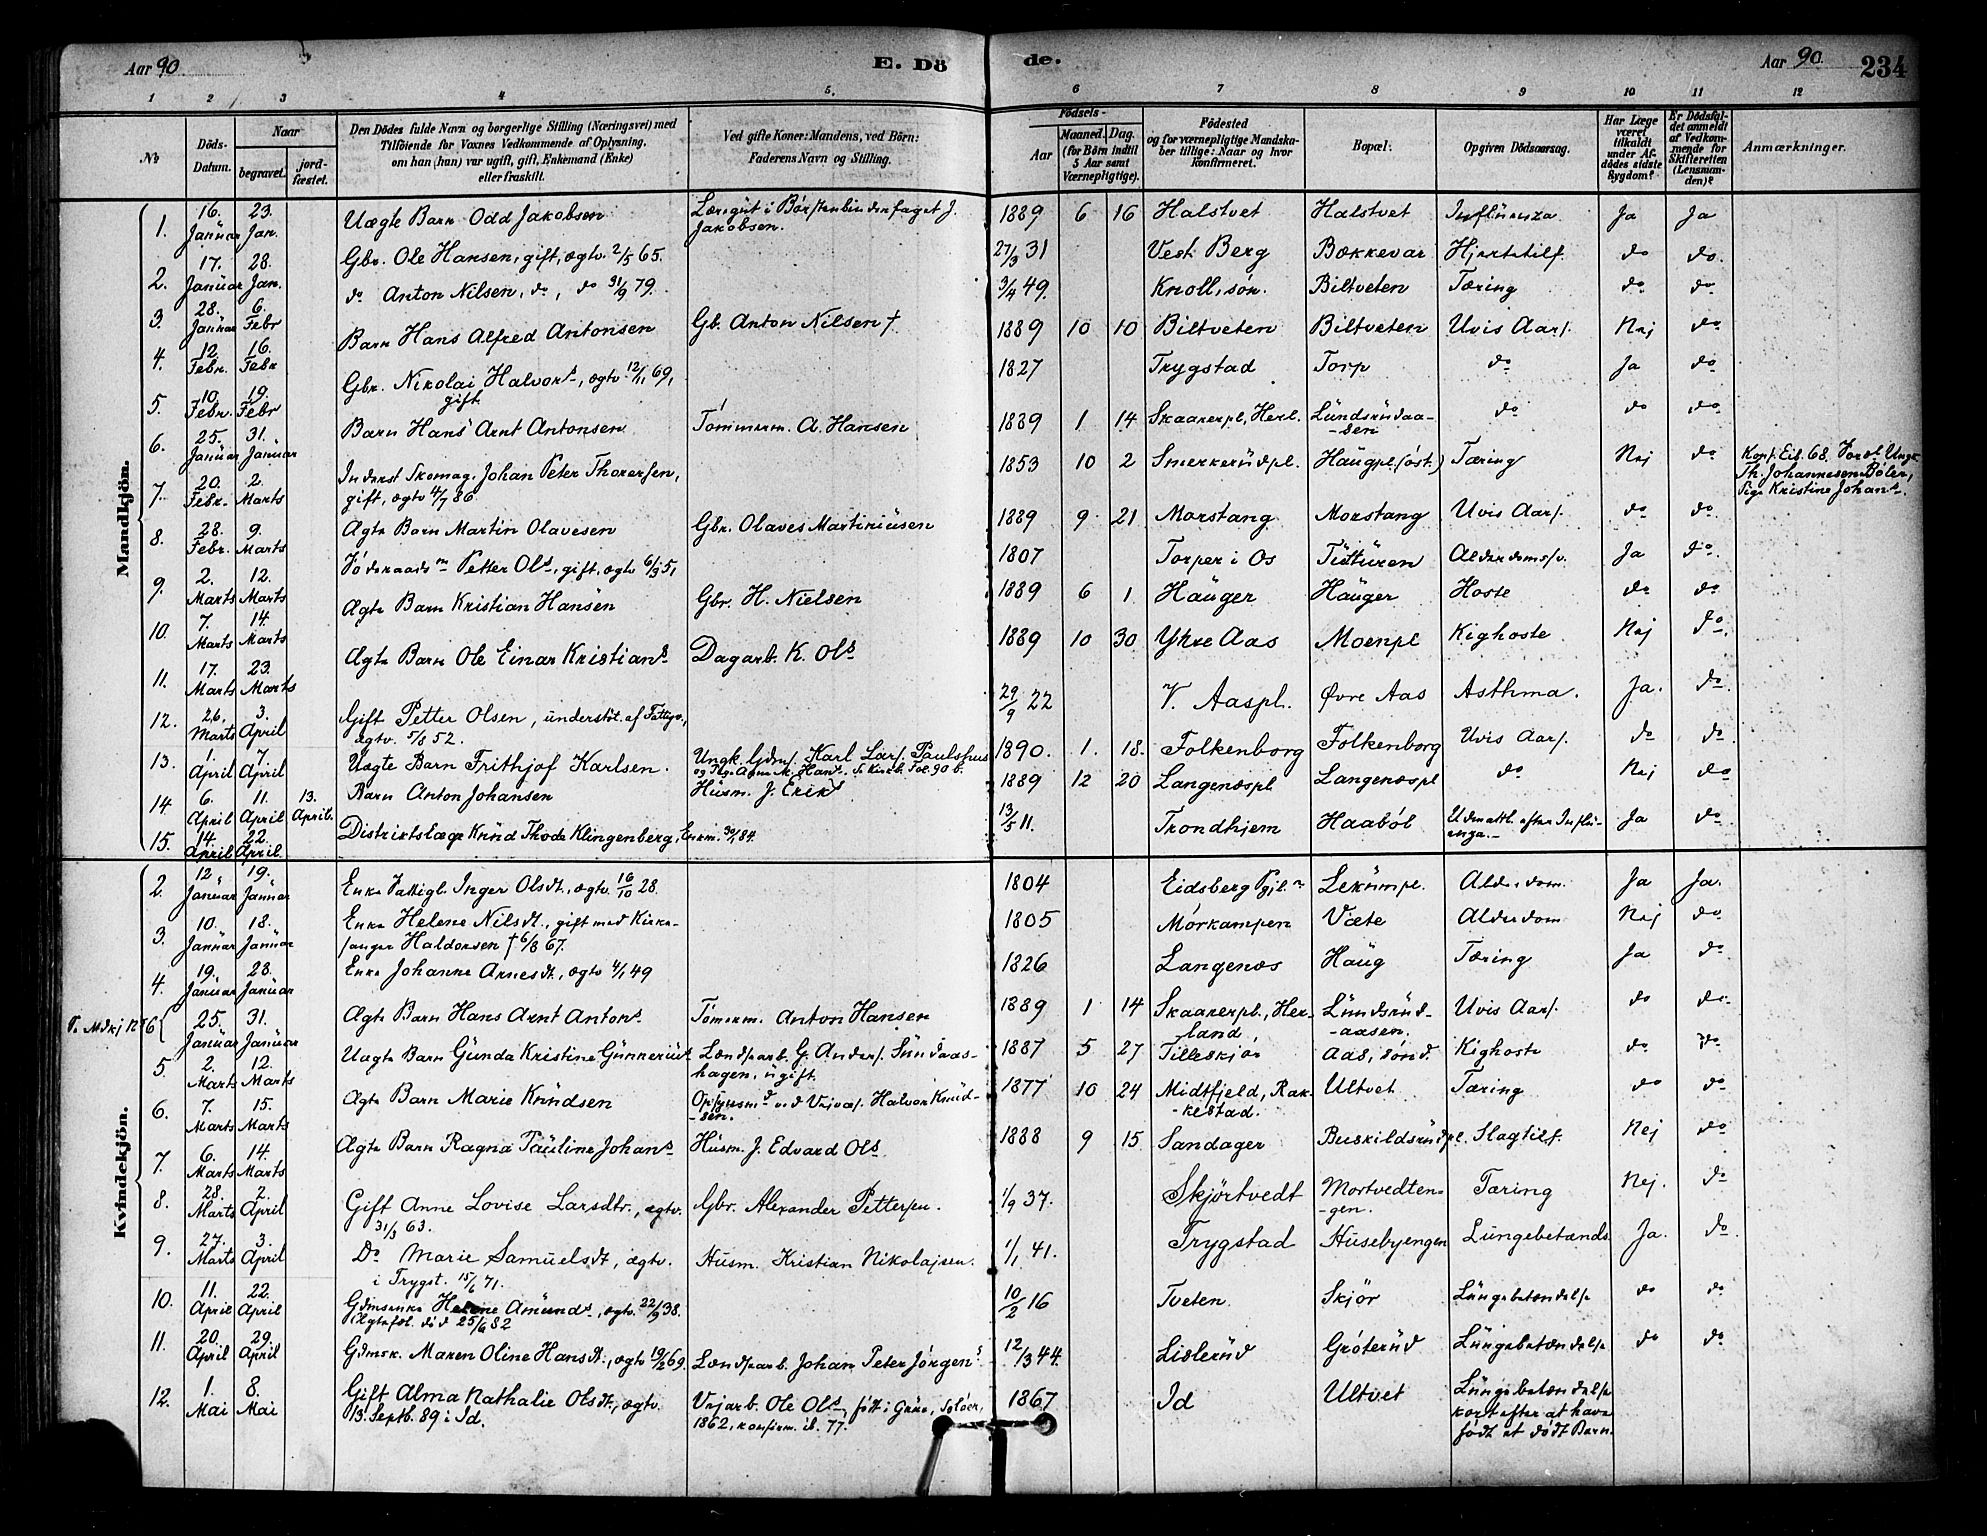 Aar 90.
E. Dö
de.
Aar 90.
234
1 2 3 4 5. 6 7 8 9 10 11 12
No
Döds-Datum.
Naar
begravet.
jord-fæstet.
Den Dödes fulde Navn og borgerlige Stilling (Næringsvei) med
Tilföiende for Voxnes Vedkommende af Oplysning,
om han (hun) var ugift, gift, Enkemand (Enke)
eller fraskilt.
Ved gifte Koner: Mandens, ved Börn:
Faderens Navn og Stilling.
Födsels-
Aar
Maaned. Dag.
(for Börn indtil
5 Aar samt
Værnepligtige).
Födested
og for værnepligtige Mandska-
ber tillige: Naar og hvor
konfirmeret.
Bopæl.
Opgiven Dödsaarsag.
Har Læge
været
tilkaldt
under Af-
dødes sidste
Sygdom?
Er Dödsfal-
det anmeldt
af Vedkom-
mende for
Skifteretten
(Lensman-
den)?
Anmærkninger.
Mandkjön.
1. 16. Januar 23. Jan. Uægte Barn Odd Jakobsen Læregut i Börstenbinderfaget J. Jakobsen. 1889 6 16 Halstvet Halstvet Influenza Ja Ja
2. 17. Januar 28. Jan. Gbr. Ole Hansen, gift, ægtv. 2/5 65. 27/3 31 Vest. Berg Bækkevar Hjertetilf. do do.
3. 28. Januar 6. Febr do Anton Nilsen, do, do 31/9 79. 3/4 49. Knoll, sön. Biltveten Tæring do do
4. 12. Febr. 16. Febr Barn Hans Alfred Antonsen Gb. Anton Nilsen † 1889 10 10 Biltveten Biltveten Uvis Aars. Nej do
5. 10. Febr. 19. Febr Gbr. Nikolai Halvors, ægtv. 12/11 69, gift. 1827 Trygstad Torp do Ja do
6. 25. Januar 31. Januar Barn Hans Arnt Antonsen Tömmerm. A. Hansen 1889 1 14 Skaarerpl, Herl. Lundsrudaa-
-sen do do do
7. 20. Febr. 2. Marts Inderst Skomag. Johan Peter Thoresen,
gift, ægtv 4/7 86 1853 10 2 Smerkerudpl. Haugpl. (öst.) Tæring Nej do Konf. Eid. 68. For.
Th. Johannesen Böler,
Pige Kristine Johans.
8. 28. Febr. 9. Marts Ægte Barn Martin Olavesen Gbr. Olaves Martiniusen 1889 9 21 Morstang Morstang Uvis Aars. do do
9. 2. Marts 12. Marts Föderaadsm Petter Ols, gift, ægtv 6/3 51 1807 Torper i Os Tutturen Alderdomssv. Ja do.
10. 7. Marts 14. Marts Ægte Barn Kristian Hansen Gbr. H. Nielsen 1889 6 1 Hauger Hauger Hoste do do
11. 17. Marts 23. Marts Ægte Barn Ole Einar Kristians Dagarb. K. Ols 1889 10 30 Yhre Aas Moenpl Kighoste Nej do.
12. 26. Marts 3. April Gift Petter Olsen, understöt. af Fattigv.,
ægtv. 5/8 52. 29/9 22 V. Aaspl. Øvre Aas Asthma. Ja. do.
13. 1. April 7. April Uægte Barn Frithjof Karlsen. Ungk. Gdms. Karl Lars. Paulshus
og Pige Anne M. Hans. Se Kirkb. Fol. 90 b. 1890. 1. 18. Folkenborg Folkenborg Uvis Aars. do do.
14. 6. April 11. April 13. April. Barn Anton Johansen Husm. J. Eriks 1889 12 20 Langenæspl Langenæspl do Nej do
15. 14. April 22. April. Distriktslæge Knud Thode Klingenberg, Enkm. 30/1 84. 13/5 11. Trondhjem Haaböl Udmatt. efter Influ-
enza. Ja do.
Kvindekjön.
2. 12. Januar 19. Januar Enke Fattigl. Inger Olsdt., ægtv. 16/10 28. 1804 Eidsberg Pgj. Lekumpl. Alderdom. Ja Ja.
3. 10. Januar 18. Januar Enke Helene Nilsdt., gift med Kirke-
sanger Haldorsen † 6/8 67. 1805 Mörkampen Væte Alderdom Nej do
4. 19. Januar 28. Januar Enke Johanne Arnesdt, ægtv 4/1 49 1826 Langenæs Haug Tæring Ja do
T. Mdkj No 6 { 25. Januar 31. Januar Ægte Barn Hans Arnt Antons. Tömerm. Anton Hansen 1889 1 14 Skaarerpl., Her-
land Lundsrud-
-aasen. Uvis Aars. do do
5. 2. Marts 12. Marts Uægte Barn Gunda Kristine Gunneriusd. Landsarb. G. Anders. Sundaas-
hagen, ugift. 1887 5 27 Tilleskjör Aas, sönd. Kighoste do do
6. 7. Marts 15. Marts Ægte Barn Marie Knudsen Opsynsmd ved Veivæs. Halvor Knud-
-sen. 1877 10 24 Midtfjeld, Rak-
-kestad. Ultvet Tæring do do
7. 6. Marts 14. Marts Ægte Barn Ragna Pauline Johans Husm. J. Edvard Ols 1888 9 15 Sandager Buskildsrudpl. Slagtilf. Nej do
8. 28. Marts 2. April Gift Anne Lovise Larsdtr., ægtv.
31/3 63. Gbr. Alexander Pettersen. 1/9 37. Skjörtvedt Mortvedten-
-gen. Tæring Nej. do
9. 27. Marts 3. April Do Marie Samuelsdt, ægtv.
i Trygst. 15/6 71. Husm. Kristian Nikolajsen. 1/1 41. Trygstad Husebyengen Lungebetænds. Ja. do
10. 11. April 22. April Gdmsenke Helene Amunds, ægtv. 22/9 38.
Ægtefæl. död 25/6 82 10/2 16 Tveten. Skjör Lungebetændelse do do
11. 20. April 29. April Gdmsk. Maren Oline Hansdt., ægtv 19/2 69. Landsarb. Johan Peter Jörgens 12/3 44. Lislerud Gröterud Lungebetændelse do do
12. 1. Mai 8. Mai Gift Alma Nathalie Olsdt, ægtv.
13. Septb. 89 i Id. Veiarb. Ole Ols, födt i Grue, Solöer,
1862, konfirm. ib. 77. 1867 Id Ultvet Lungebetændelse
kort efter at have
födt et dödt Barn.